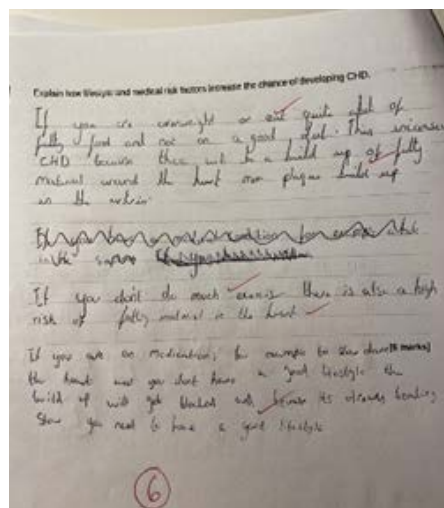 Explain how lifestyle and medical risk factors increase the chance of developing CHD.
If you are overweight or eat quite a lot of
fatty food and not on a good
CHD because there will be a build up of fatty
material around the heart plaque build up
in the
If you don't do much there is also a high
risk of fatty material in the heart
If you are on medications for example to slow down [6 marks]
the heart and you don't have a good lifestyle the
build up will get blocked its already beating
Slow you need to have a good lifestyle
6